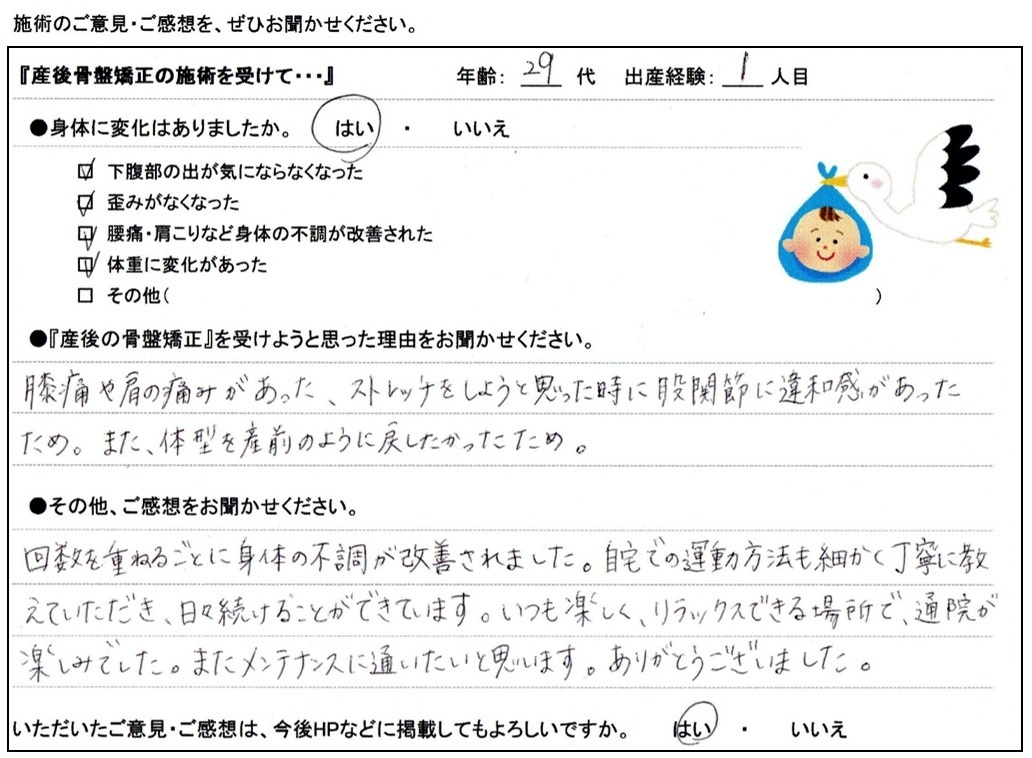 施術のご意見・ご感想を、ぜひお聞かせください。
『産後骨盤矯正の施術を受けて・・・』 年齢: 29 代 出産経験: 1 人目
●身体に変化はありましたか。 はい ・ いいえ
☑ 下腹部の出が気にならなくなった
☑ 歪みがなくなった
☑ 腰痛・肩こりなど身体の不調が改善された
☑ 体重に変化があった
□ その他( )
●『産後の骨盤矯正』を受けようと思った理由をお聞かせください。
膝痛や肩の痛みがあった、ストレッチをしようと思った時に股関節に違和感があった
ため。また、体型を産前のように戻したかったため。
●その他、ご感想をお聞かせください。
回数を重ねるごとに身体の不調が改善されました。自宅での運動方法も細かく丁寧に教
えていただき、日々続けることができています。いつも楽しく、リラックスできる場所で、通院が
楽しみでした。またメンテナンスに通いたいと思います。ありがとうございました。
いただいたご意見・ご感想は、今後HPなどに掲載してもよろしいですか。 はい ・ いいえ